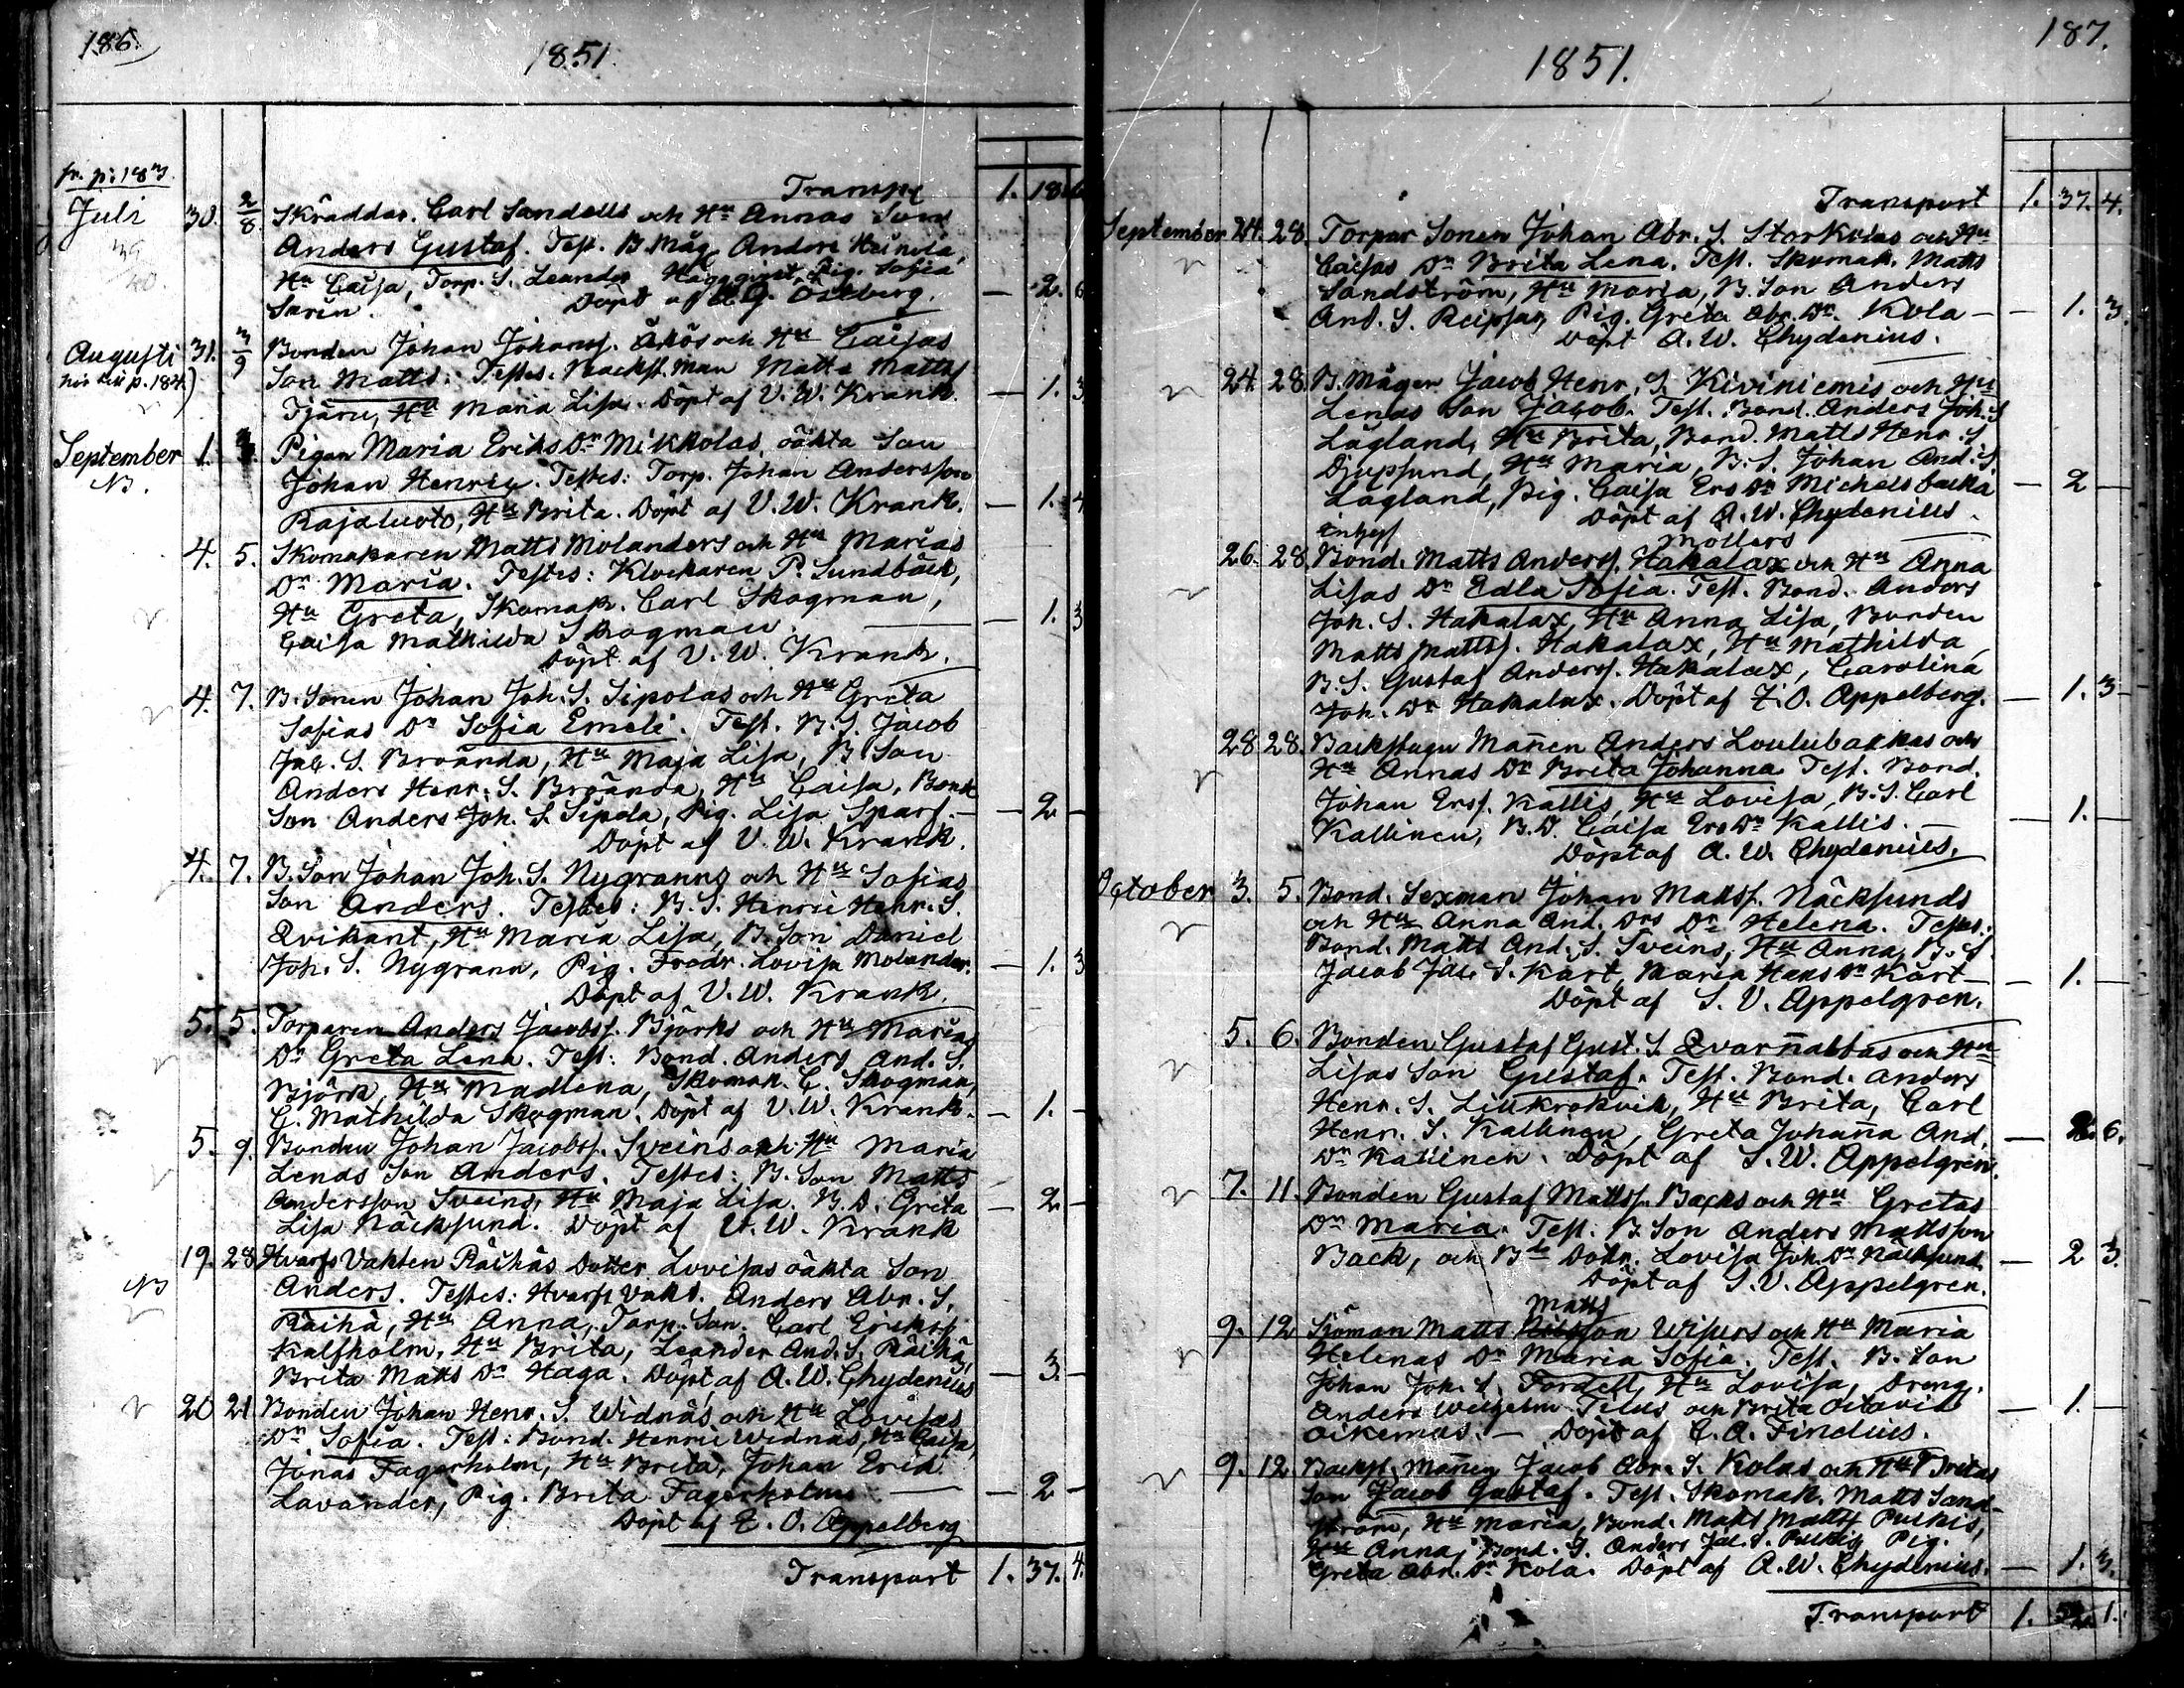 186.
1851
fr. p: 183.
Transp 1. 18. 6
Juli 30. 2/8 Skräddar. Carl Sandells och Hu Annas Son
Anders Gustaf. Test. B. Måg Anders Heinola,
Hu Caisa, Torp. S. Leander Häggqvist, Pig. Sofia
Sarin. Döpt af A. G. Östberg. — 2. 6
Augusti 31. 3/9 Bonden Johan Johanss. Åkös och Hu Caisas
hör till p. 184)
Son Matts. Testes: Backst. man Matts Mattss
Tjäru, Hu Maria Lisa. Döpt af V. W. Krank. — 1. 3
September 1. Pigan Maria Eriks Dr Mikkolas, oäkta Son
NB.
Johan Henric. Testes: Torp. Johan Andersson
Rajaluoto, Hu Brita. Döpt af V. W. Krank. — 1. 4
4. 5. Skomakaren Matts Molanders och Hu Marias
Dr Maria. Testes: Klockaren P. Sundbäck,
Hu Greta, Skomak. Carl Skogman,
Caisa Mathilda Skogman. — 1. 3
Döpt af V. W. Krank.
4. 7. B. Sonen Johan Joh. S. Sipolas och Hu Greta
Sofias Dr Sofia Emeli. Test. B. S. Jacob
Jac. S. Broända, Hu Maja Lisa, B. Son
Anders Henr. S. Broända, Hu Caisa, Bond
Son Anders Joh. S. Sipola, Pig. Lisa Sparf. — 2 —
Döpt af V. W. Krank.
4. 7. B. Son Johan Joh. S. Nygranns och Hu Sofias
Son Anders. Testes: B. S. Henric Henr. S.
Qvikant, Hu Maria Lisa, B. Son Daniel
Joh. S. Nygrann, Pig. Fredr. Lovisa Molander. — 1. 3
Döpt af V. W. Krank.
5. 5. Torparen Anders Jacobss. Björks och Hu Marias
Dr Greta Lena. Test: Bond. Anders And. S.
Björk, Hu Madlena, Skomak. C. Skogman,
C. Mathilda Skogman. Döpt af V. W. Krank. — 1. —
5. 9. Bonden Johan Jacobss. Sveins och Hu Maria
Lenas Son Anders. Testes: B. Son Matts
Andersson Sveins, Hu Maja Lisa. B. D. Greta — 2 —
Lisa Näcksund. Döpt af V. W. Krank
19. 28 Hvarfs Vakten Räihäs Dotter Lovisas oäkta Son
NB
Anders. Testes: Hvarfs Vakt. Anders Abr. S.
Räihä, Hu Anna, Torp. Son. Carl Erikss
Kalfholm, Hu Brita, Leander And. S. Räihä,
Brita Matts Dr Haga. Döpt af A. W. Chydenius — 3. —
20 21 Bonden Johan Henr. S. Widnäs och Hu Lovisas
Dr Sofia. Test: Bond. Henric Widnäs, Hu Caisa,
Jonas Fagerholm, Hu Brita, Johan Eric
Lavander, Pig. Brita Fagerholm — 2 —
Döpt af Z. O. Appelberg
Transport 1. 37. 4.
187.
1851.
Transport 1. 37. 4.
September 24. 28. Torpar Sonen Johan Abr. S. Storkolas och Hu
Caisas Dr Brita Lena. Test. Skomak. Matts
Sandström, Hu Maria, B. Son Anders
And. S. Reipsar, Pig. Greta Abr. Dr. Kola — 1. 3.
Döpt A. W. Chydenius.
24. 28. B. Mågen Jacob Henr. S. Kiviniemis och Hu
Lenas Son Jacob. Test. Bond. Anders Joh. S
Lågland, Hu Brita, Bond. Matts Henr. S.
Djupsund, Hu Maria, B. S. Johan And. S.
Lågland, Pig. Caisa Ers Dr Michelsbacka — 2 —
Döpt af A. W. Chydenius.
inhys Möllers
26. 28. Bond. Matts Anderss. Hakalax och Hu Anna
Lisas Dr Edla Sofia. Test. Bond. Anders
Joh. S. Hakalax, Hu Anna Lisa, Bonden
Matts Mattss. Hakalax, Hu Mathilda,
B. S. Gustaf Anderss. Hakalax, Carolina
Joh. Dr Hakalax. Döpt af Z. O. Appelberg. — 1. 3
28. 28. Backstugu Mañen Anders Loulubackas och
Hu Annas Dr Brita Johanna Test. Bond.
Johan Erss. Kallis, Hu Lovisa, B. S. Carl
Kallinen, B. D. Caisa Ers Dr Kallis. — 1. —
Döpt af A. W. Chydenius.
October 3. 5. Bond. Sexman Johan Mattss. Näcksunds
och Hu Anna And. Drs Dr Helena. Testes:
Bond. Matts And. S. Sveins, Hu Anna, B. S.
Jacob Jac. S. Kärt, Maria Hans Dr Kärt — 1. —
Döpt af S. V. Appelgren.
5. 6. Bonden Gustaf Gust. S. Qvarñabbas och Hu
Lisas Son Gustaf. Test. Bond. Anders
Henr. S. Lillkrokvik, Hu Brita, Carl
Henr. S. Kallinen, Greta Johaña And. — 2. 6.
Dr Kallinen. Döpt af S. W. Appelgren.
7. 11. Bonden Gustaf Mattss. Backs och Hu Gretas
Dr Maria. Test: B. Son Anders Mattsson
Back, och Bde Dottr. Lovisa Joh. Dr Näcksund. — 2 3.
Döpt af S. V. Appelgren.
Matts
9. 12 Sjöman Matts Nilsson Wisurs och Hu Maria
Helenas Dr Maria Sofia. Test. B. Son
Johan Joh. S. Fordell, Hu Lovisa, Dreng.
Anders Wilhelm Telus och Brita Octavia — 1. —
Oikemus. — Döpt af C. A. Finelius.
9. 12 Backst. Mañen Jacob Abr. S. Kolas och Hu Britas
Son Jacob Gustaf. Test. Skomak. Matts Sand-
ström, Hu Maria, Bond. Matts Mattss Pulkis,
Hu Anna, Bond. S. Anders Jac. S. Pulkis, Pig.
Greta Abr. Dr Kola. Döpt af A. W. Chydenius. — 1. 3.
Transport 1. 52. 1.